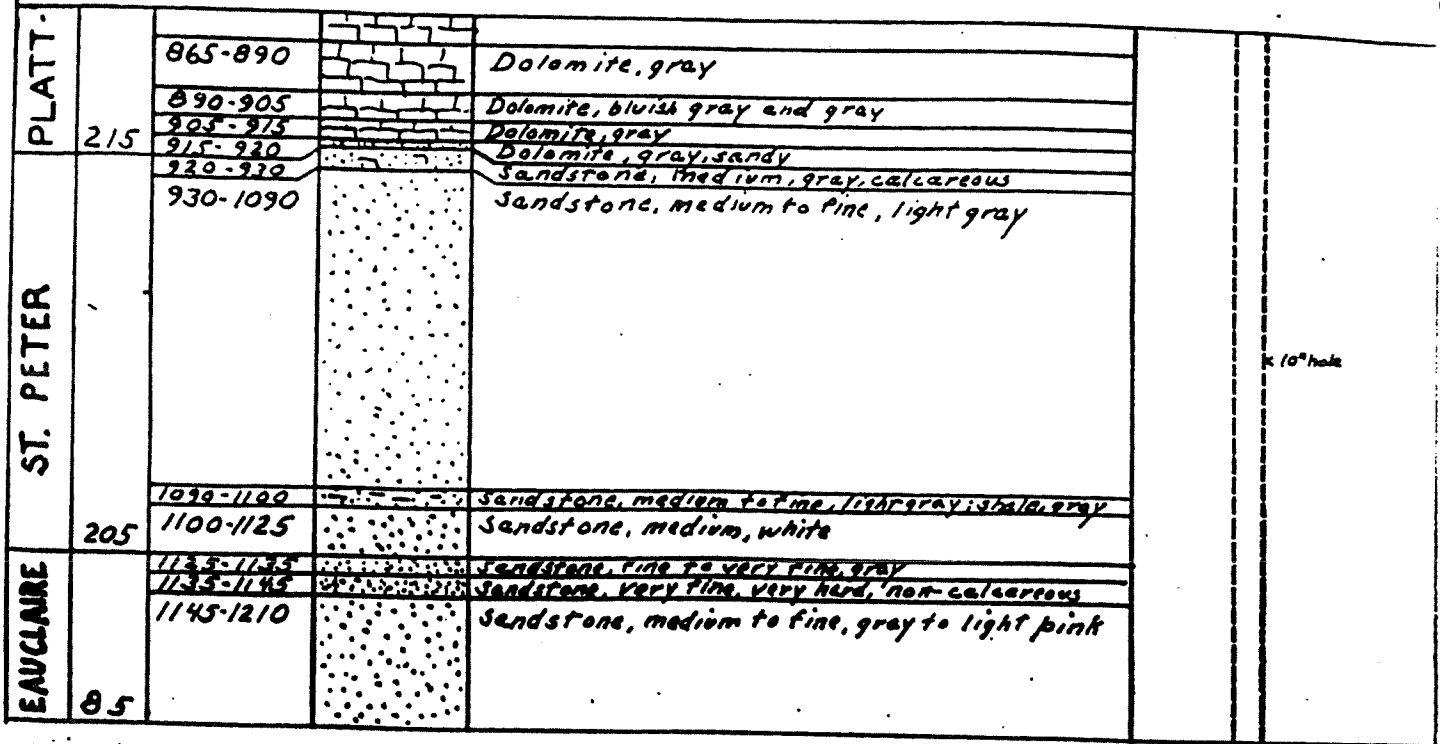 PLATT.
215
865-890 Dolomite, gray
890-905 Dolomite, bluish gray and gray
905-915 Dolomite, gray
915-920 Dolomite, gray, sandy
920-930 Sandstone, medium, gray, calcareous
930-1090 Sandstone, medium to fine, light gray
x 10" hole
ST. PETER
205
1090-1100 Sandstone, medium to fine, light gray; shale, gray
1100-1125 Sandstone, medium, white
1125-1135 Sandstone, fine to very fine, gray
1135-1145 Sandstone, very fine, very hard, non-calcareous
1145-1210 Sandstone, medium to fine, gray to light pink
EAUCLAIRE
85